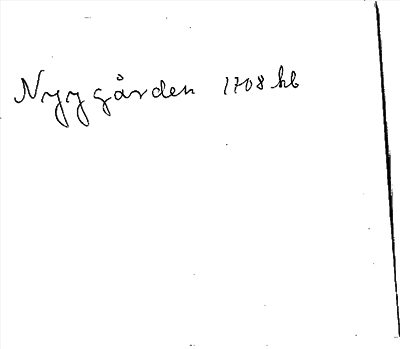 Nyygården 1708 hb